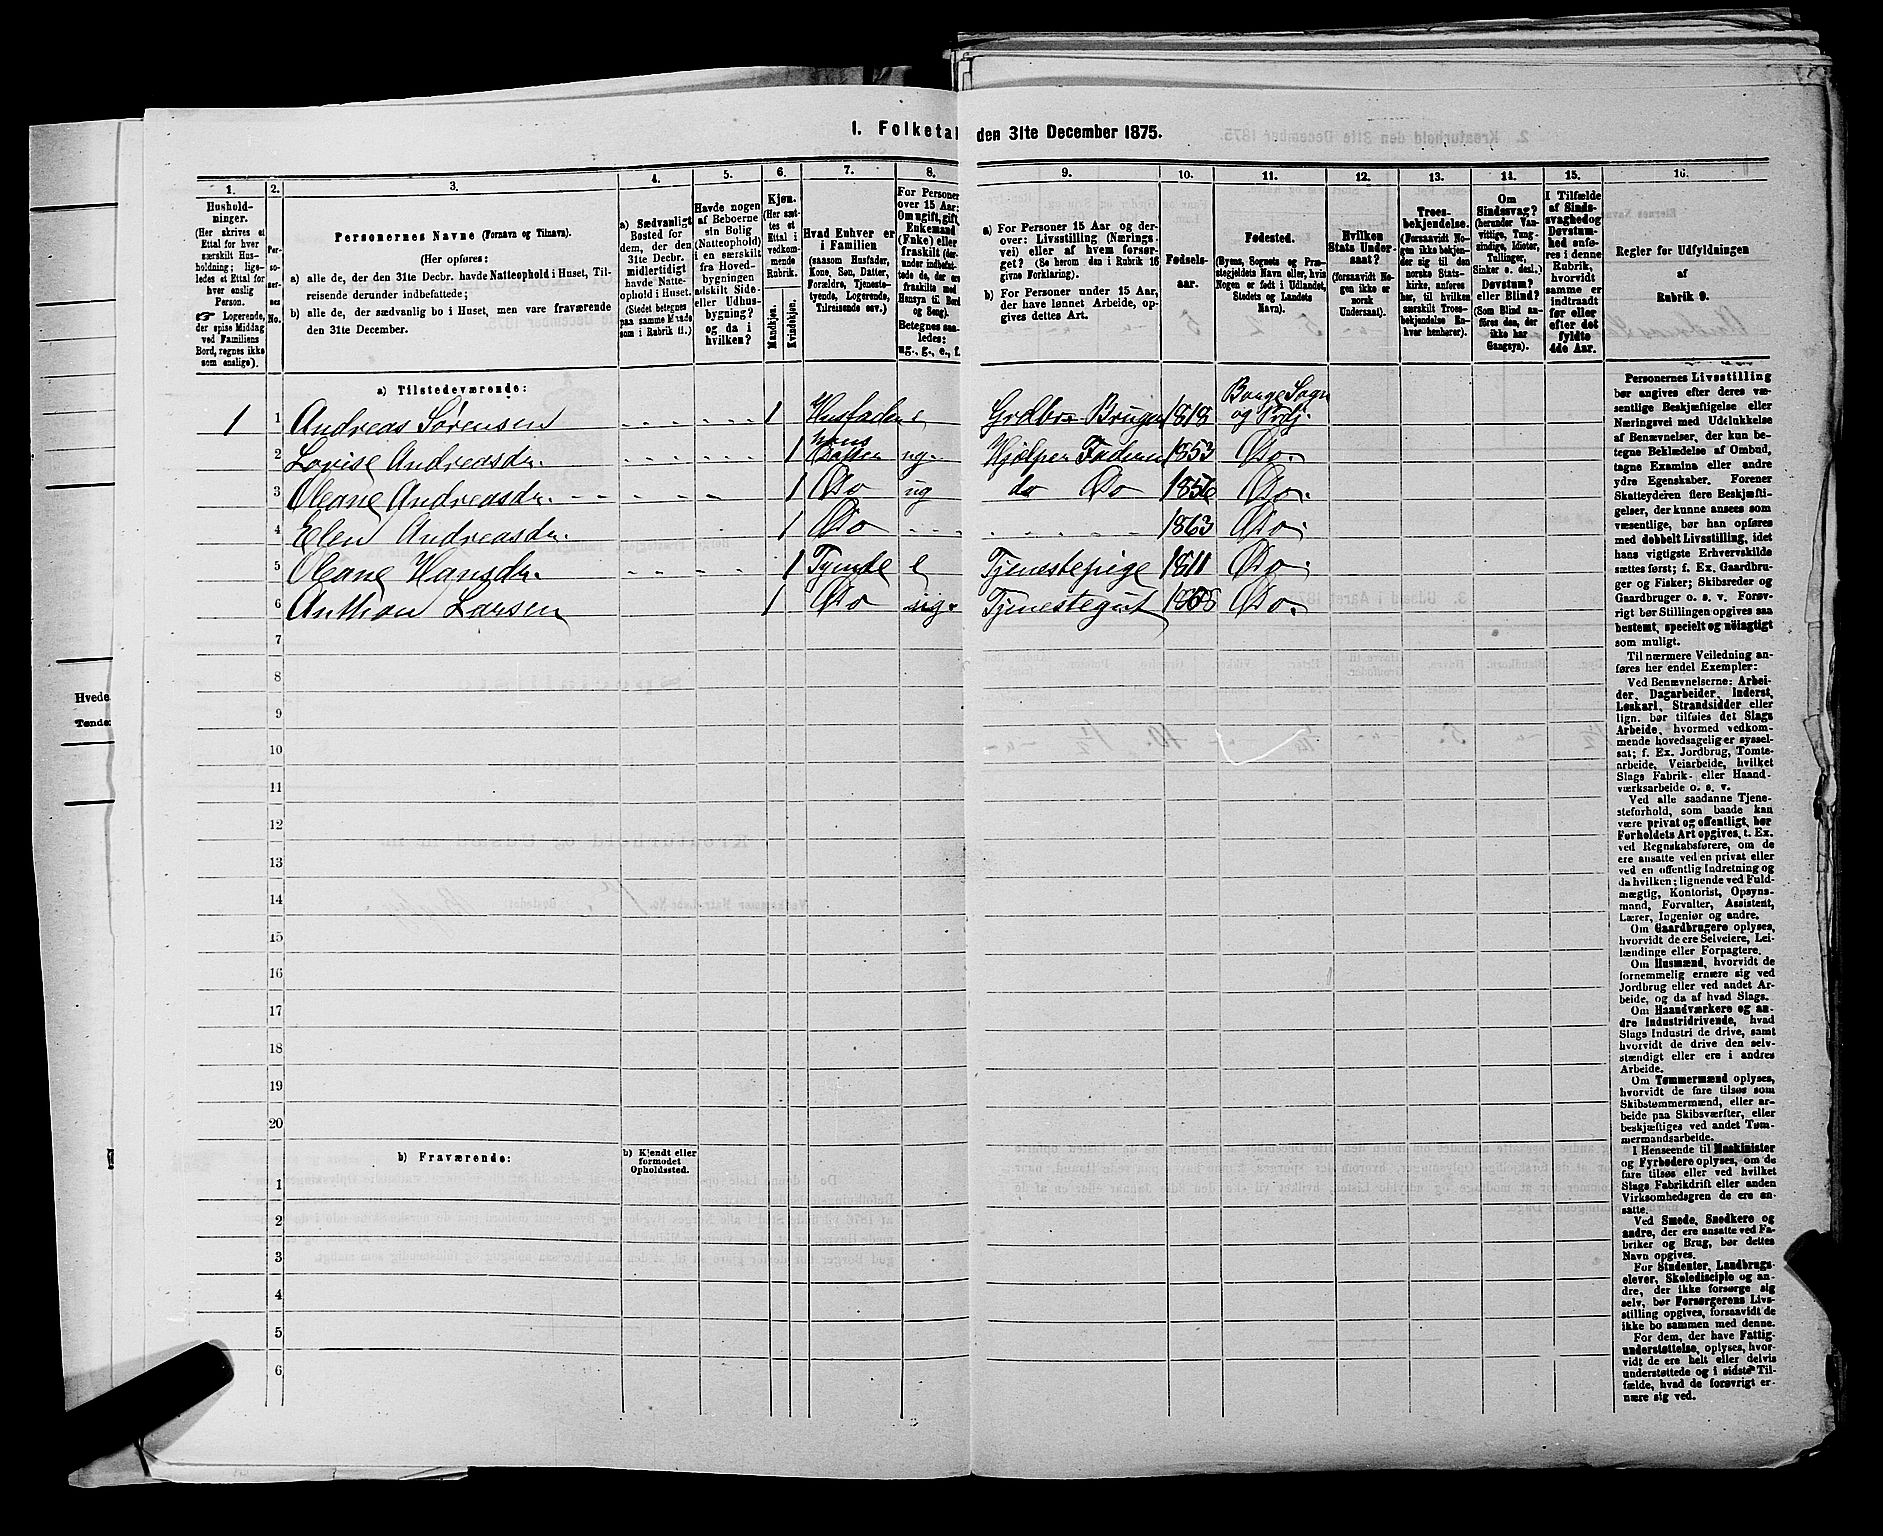 1. Folketal den 31te December 1875.
1.
Hushold-
ninger.
(Her skrives et
Ettal for hver
særskilt Hus-
holdning; lige-
ledes et Ettal for
hver enslig
Person.
☛ Logerende,
der spise Middag
ved Familiens
Bord, regnes ikke
som enslige).
2.
Per-
so-
ner-
nes
No.
3.
Personernes Navne (Fornavn og Tilnavn).
(Her opføres:
a) alle de, der den 31te Decbr. havde Natteophold i Huset, Til-
reisende derunder indbefattede;
b) alle de, der sædvanlig bo i Huset, men vare fraværende
den 31te December.
4.
a) Sædvanligt
Bosted for
dem, der den
31te Decbr.
midlertidigt
havde Natte-
ophold i Huset.
(Stedet betegnes
paa samme Maade
som i Rubrik 11.)
5.
Havde nogen
af Beboerne
sin Bolig
(Natteophold)
i en særskilt
fra Hoved-
bygningen
adskilt Side-
eller Udhus-
bygning?
og da i
hvilken?
6.
Kjøn.
(Her sæt-
tes et
Ettal i
vedkom-
mende
Rubrik.
Mandkjøn.
Kvindekjøn.
7.
Hvad Enhver er
i Familien
(saasom Husfader,
Kone, Søn, Datter,
Forældre, Tjeneste-
tyende, Logerende,
Tilreisende osv.)
8.
For Personer
over 15 Aar:
Om ugift, gift,
Enkemand
(Enke) eller
fraskilt (der-
under indbefat-
tede de, der ere
fraskilte med
Hensyn til Bord
og Seng).
Betegnes saa-
ledes:
ug., g., e., f.
9.
a) For Personer 15 Aar og der-
over: Livsstilling (Nærings-
vei) eller af hvem forsør-
get? (Se herom den i Rubrik 16
givne Forklaring).
b) For Personer under 15 Aar,
der have lønnet Arbeide, op-
gives dettes Art.
10.
Fødsels-
aar.
11.
Fødested.
(Byens, Sognets og Præ-
stegjeldets Navn eller, hvis
Nogen er født i Udlandet,
Stedets og Landets
Navn).
12.
Hvilken
Stats Under-
saat?
(forsaavidt No-
gen ikke er
norsk
Undersaat).
13.
Troes-
bekjendelse.
(Forsaavidt No-
gen ikke bekjen-
der sig til den
norske Stats-
kirke, anføres
her, til hvilken
særskilt Troes-
bekjendelse En-
hver henhører).
14.
Om
Sindssvag?
(herunder Van-
vittige, Tung-
sindige, Idioter,
Tullinger,
Sinker o. desl.)
Døvstum?
eller Blind?
(Som Blind an-
føres den, der
ikke har
Gangsyn).
15.
I Tilfælde
af Sinds-
svaghed og
Døvstum-
hed anfø-
res i denne
Rubrik,
hvorvidt
samme er
indtraadt
før eller
efter det
fyldte
4de Aar.
16.
Regler for Udfyldningen
af
Rubrik 9.
a) Tilstedeværende:
1 1 Andreas Sørensen 1 Husfader e Grdbr. Bruger 1818 Borge Sogn og Prgj.
2 Lovise Andreasdr. 1 hans Datter ug. Hjælper Faderen 1853 Do.
3 Oleane Andreasdr. 1 Do ug do Do 1856 Do.
4 Elen Andreasdr. 1 Do 1863 Do.
5 Oleane Hansdr. 1 Tyende e Tjenestepige 1811 Do.
6 Anthon Larsen 1 Do ug. Tjenestegut Do.
7
8
9
10
11
12
13
14
15
16
17
18
19
20
b) Fraværende:
b) Kjendt eller
formodet
Opholdssted.
1
2
3
4
5
6
Personernes Livsstilling
bør angives efter deres væ-
sentlige Beskjæftigelse eller
Næringsvei med Udelukkelse
af Benævnelser, der kun be-
tegne Beklædelse af Ombud,
tagne Examina eller andre
ydre Egenskaber. Forener
Skatteyderen flere Beskjæfti-
gelser, der kunne ansees som
væsentlige, bør han opføres
med dobbelt Livsstilling, idet
hans vigtigste Erhvervskilde
sættes først; f. Ex. Gaardbru-
ger og Fisker; Skibsreder og
Gaardbruger o. s. v. Forøv-
rigt bør Stillingen opgives saa
bestemt, specielt og nøiagtigt
som muligt.
Til nærmere Veiledning an-
føres her endel Exempler:
Ved Benævnelserne: Arbei-
der, Dagarbeider, Inderst,
Løskarl, Strandsidder eller
lign. bør tilføies det Slags
Arbeide, hvormed vedkom-
mende hovedsagelig er syssel-
sat; f. Ex. Jordbrug, Tomte-
arbeide, Veiarbeide, hvilket
Slags Fabrik- eller Haand-
værksarbeide o. s. v.
Ved alle saadanne Tjene-
steforhold, som baade kan
være privat og offentligt, bør
Forholdets Art opgives, t. Ex.
ved Regnskabsførere, om de
ere ansatte ved en privat eller
ved en offentlig Indretning og
da hvilken; lignende ved Fuld-
mægtig, Kontorist, Opsyns-
mand, Forvalter, Assistent,
Lærer, Ingeniør og andre.
Om Gaardbrugere oplyses,
hvorvidt de ere Selveiere, Lei-
lændinge eller Forpagtere.
Om Husmænd, hvorvidt de
fornemmelig ernære sig ved
Jordbrug eller ved andet Ar-
beide, og da af hvad Slags.
Om Haandværkere og an-
dre Industridrivende, hvad
Slags Industri de drive, samt
hvorvidt de drive den selv-
stændigt eller ere i andres
Arbeide.
Om Tømmermænd oplyses,
hvorvidt de fare tilsøs som
Skibstømmermænd, eller ar-
beide paa Skibsværfter, eller
beskjæftiges ved andet Tøm-
mermandsarbeide.
I Henseende til Maskinister
og Fyrbødere oplyses, om de
fare tilsøs eller ved hvilket
Slags Fabrikdrift eller anden
Virksomhedsgren de ere an-
satte.
Ved Smede, Snedkere og
andre, der ere ansatte ved Fa-
briker og Brug, bør dettes
Navn opgives.
For Studenter, Landbrugs-
elever, Skoledisciple og an-
dre, der ikke forsørge sig
selv, bør Forsørgerens Livs-
stilling opgives, forsaavidt de
ikke bo sammen med denne.
For dem, der have Fattig-
understøttelse, oplyses, hvor-
vidt de ere helt eller delvis
understøttede og i sidste Til-
fælde, hvad de forøvrigt er-
nære sig ved.
Hvede.
Tønder